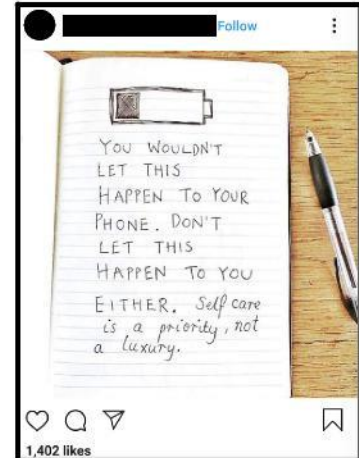 Follow
YOU WOULDN'T
LET THIS
HAPPEN TO YOUR
PHONE. DON'T
LET THIS
HAPPEN TO YOU
EITHER. Self care
is a priority, not
a luxury.
1,402 likes